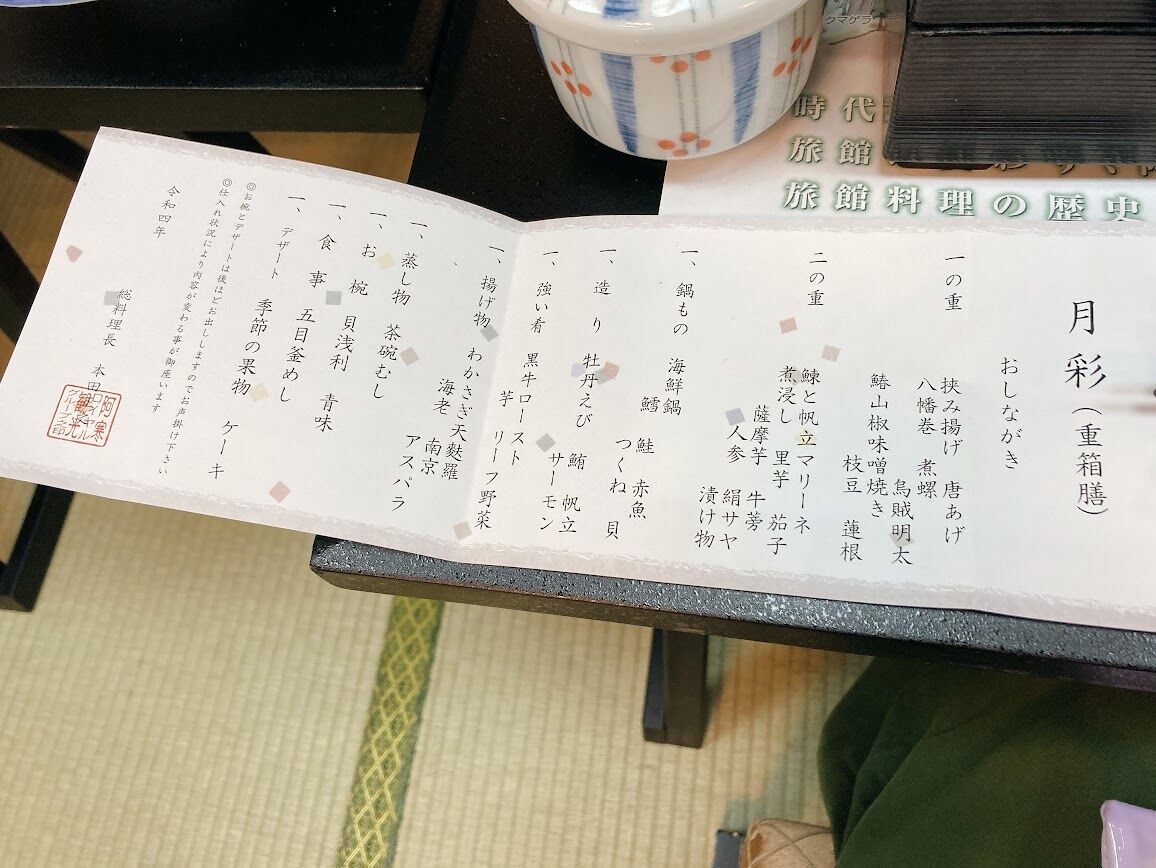 月彩(重箱膳)
おしながき
一の重
挟み揚げ 唐あげ
八幡巻 煮螺
烏賊明太
鰆山椒味噌焼き
枝豆 蓮根
二の重
鰊と帆立マリーネ
煮浸し 里芋 茄子
薩摩芋 牛蒡
人参 絹サヤ
漬け物
一、鍋もの 海鮮鍋
鱈 鮭 赤魚
つくね 貝
一、造り 牡丹えび
鮪 帆立
サーモン
一、強い肴 黒牛ロースト
芋 リーフ野菜
一、揚げ物 わかさぎ天麩羅
海老 南京
アスパラ
一、蒸し物 茶碗むし
一、お椀 貝浅利 青味
一、食事 五目釜めし
一、デザート 季節の果物 ケーキ
◎お椀とデザートは後ほどお出ししますのでお声掛け下さい
◎仕入れ状況により内容が変わる事が御座います
令和四年
総料理長 本田
阿寒
観光
グループ
クマゲラ
時代
旅館
旅館料理の歴史